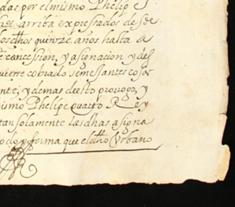 das por el mismo Phelipe
arriba expressados de se
los dhos quinze años hasta a
concession, y asignacion y del
uviere cobrado semessantes cosor
nte, y demas deesto provogo, y
ismo Phelipe quarto Rey
tan solamente las dhas asigna
odo y forma que el dho Urbano